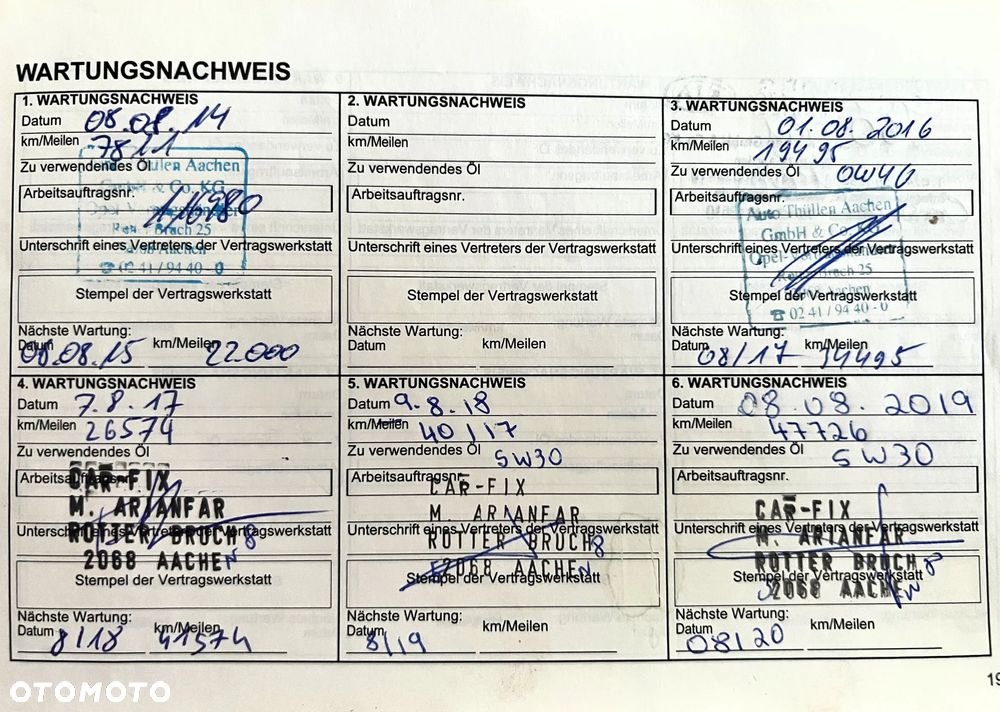 WARTUNGSNACHWEIS
1. WARTUNGSNACHWEIS
Datum 08.08.14
km/Meilen 7811
Zu verwendendes Öl
Thüllen Aachen
GmbH & Co. KG
Arbeitsauftragsnr.
Opel
Roter Brach 25
Unterschrift eines Vertreters der Vertragswerkstatt
Aachen
☎ 02 41 / 94 40 - 0
Stempel der Vertragswerkstatt
Nächste Wartung:
Datum 08.08.15 km/Meilen 22.000
2. WARTUNGSNACHWEIS
Datum
km/Meilen
Zu verwendendes Öl
Arbeitsauftragsnr.
Unterschrift eines Vertreters der Vertragswerkstatt
Stempel der Vertragswerkstatt
Nächste Wartung:
Datum km/Meilen
3. WARTUNGSNACHWEIS
Datum 01.08.2016
km/Meilen 19495
Zu verwendendes Öl 0W40
Arbeitsauftragsnr.
Auto Thüllen Aachen
GmbH & Co. KG
Unterschrift eines Vertreters der Vertragswerkstatt
Brach 25
Aachen
Stempel der Vertragswerkstatt
☎ 02 41 / 94 40 - 0
Nächste Wartung:
Datum 08/17 km/Meilen 34495
4. WARTUNGSNACHWEIS
Datum 7.8.17
km/Meilen 26574
Zu verwendendes Öl
Arbeitsauftragsnr.
CAR-FIX
M. ARIANFAR
Unterschrift eines Vertreters der Vertragswerkstatt
ROTTER BRUCH 8
2068 AACHEN
Stempel der Vertragswerkstatt
Nächste Wartung:
Datum 8/18 km/Meilen 41574
5. WARTUNGSNACHWEIS
Datum 9.8.18
km/Meilen 40117
Zu verwendendes Öl 5W30
Arbeitsauftragsnr.
CAR-FIX
M. ARIANFAR
Unterschrift eines Vertreters der Vertragswerkstatt
ROTTER BRUCH 8
52068 AACHEN
Stempel der Vertragswerkstatt
Nächste Wartung:
Datum 8/19 km/Meilen
6. WARTUNGSNACHWEIS
Datum 08.08.2019
km/Meilen 47726
Zu verwendendes Öl 5W30
Arbeitsauftragsnr.
CAR-FIX
Unterschrift eines Vertreters der Vertragswerkstatt
M. ARIANFAR
ROTTER BRUCH 8
Stempel der Vertragswerkstatt
52068 AACHEN
Nächste Wartung:
Datum 08/20 km/Meilen
19
OTOMOTO